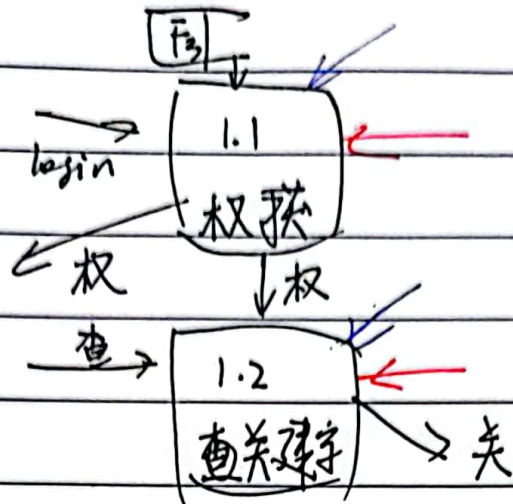 F3
login
1.1
权获
权
权
查
1.2
查关建字
关